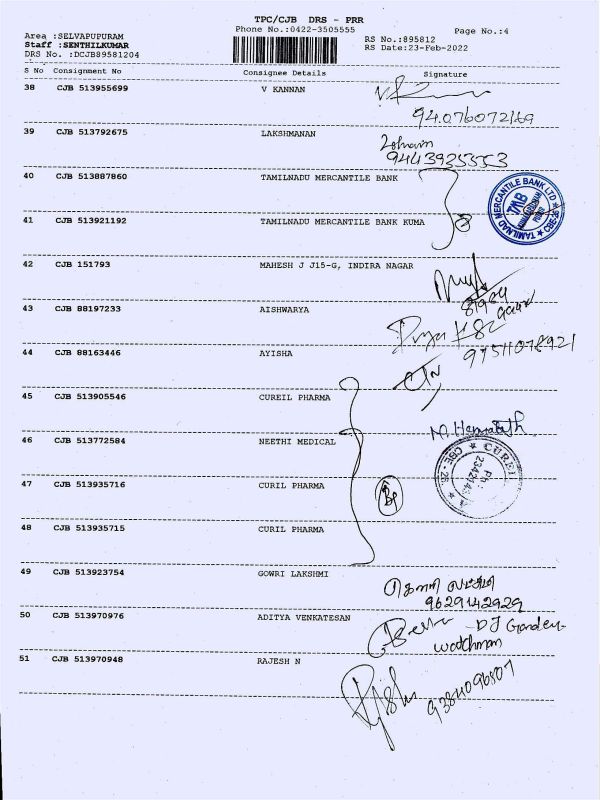 TPC/CJB DRS - PRR
Phone No.:0422-3505555
Page No.:4
Area :SELVAPUPURAM
Staff :SENTHILKUMAR
DRS No. :DCJB89581204
RS No.:895812
RS Date:23-Feb-2022
S No Consignment No Consignee Details Signature
38 CJB 513955699 V KANNAN
94.076072169
39 CJB 513792675 LAKSHMANAN
9443935553
40 CJB 513887860 TAMILNADU MERCANTILE BANK
TAMILNAD MERCANTILE BANK LTD
TMB
41 CJB 513921192 TAMILNADU MERCANTILE BANK KUMA
42 CJB 151793 MAHESH J J15-G, INDIRA NAGAR
43 CJB 88197233 AISHWARYA
44 CJB 88163446 AYISHA
45 CJB 513905546 CUREIL PHARMA
46 CJB 513772584 NEETHI MEDICAL
47 CJB 513935716 CURIL PHARMA
48 CJB 513935715 CURIL PHARMA
49 CJB 513923754 GOWRI LAKSHMI
9629142929
50 CJB 513970976 ADITYA VENKATESAN
watchman
51 CJB 513970948 RAJESH N